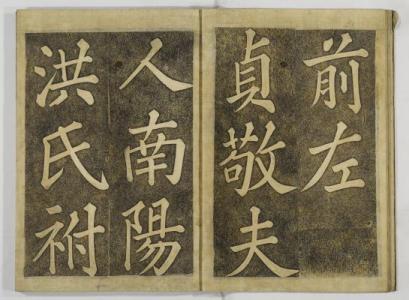 前左
貞敬夫
人南陽
洪氏祔